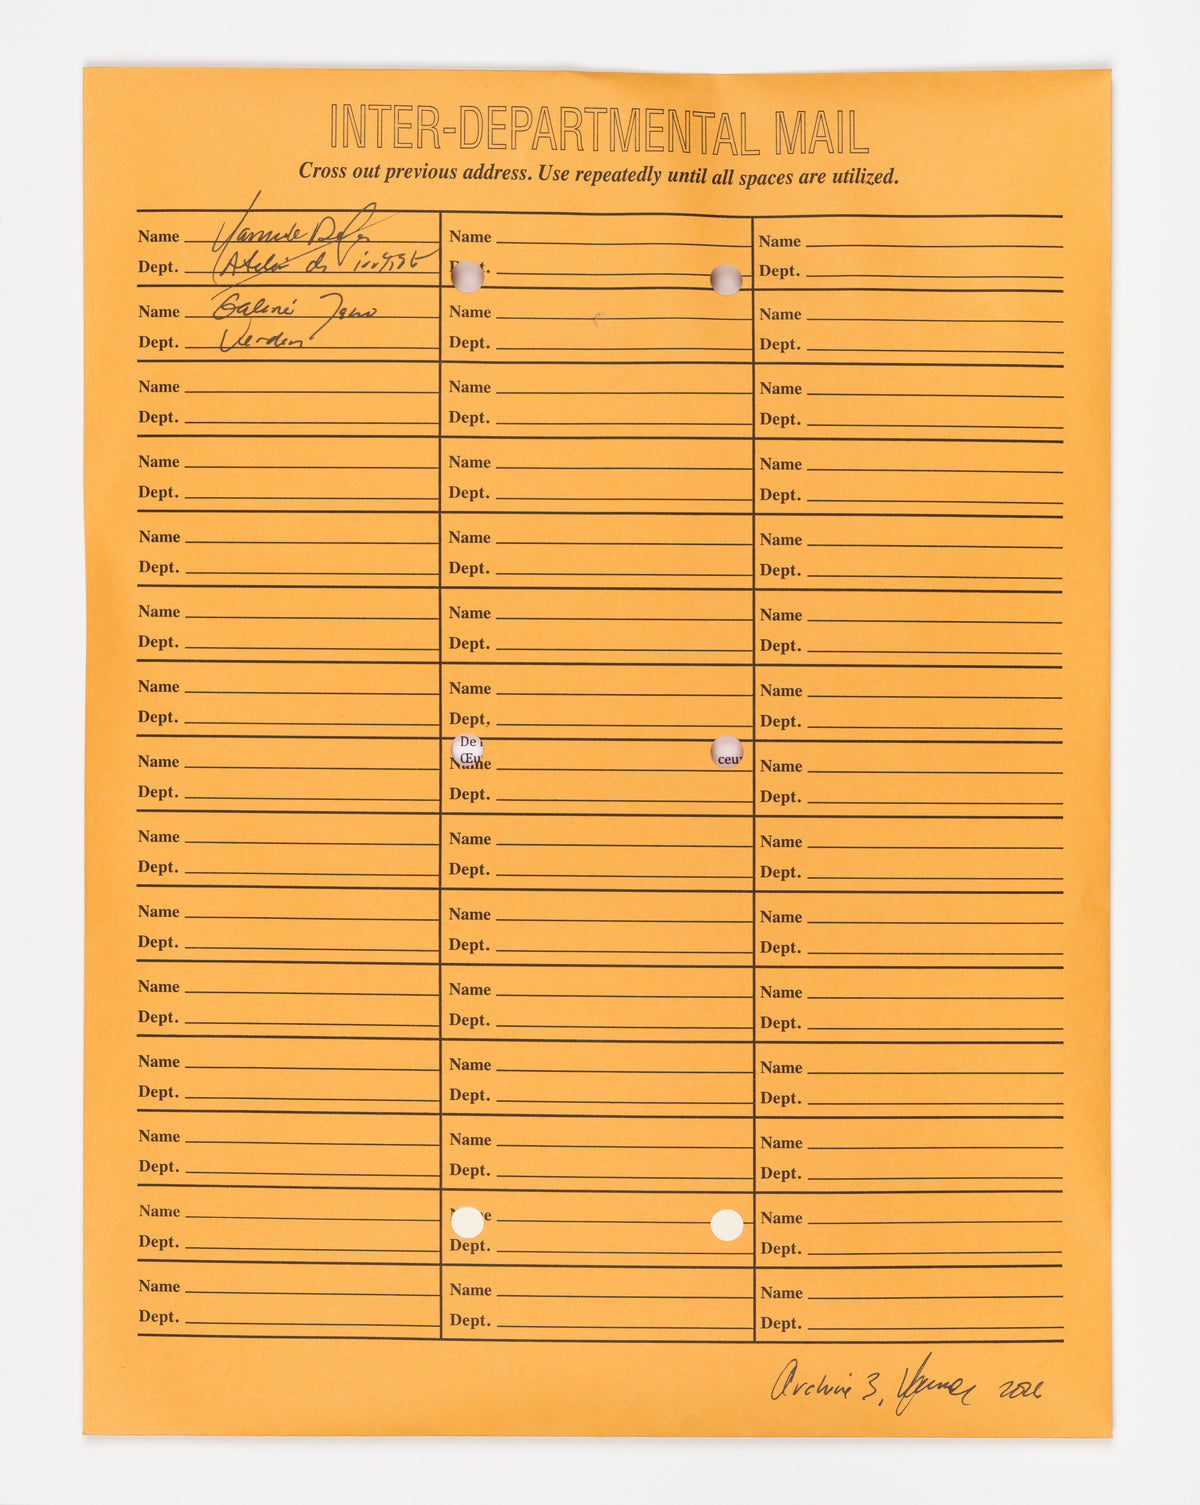 INTER-DEPARTMENTAL MAIL
Cross out previous address. Use repeatedly until all spaces are utilized.
Name Name Name
Dept. Atelier de t. Dept.
Name Galerie Name Name
Dept. Dept. Dept.
Name Name Name
Dept. Dept. Dept.
Name Name Name
Dept. Dept. Dept.
Name Name Name
Dept. Dept. Dept.
Name Name Name
Dept. Dept. Dept.
Name Name Name
Dept. Dept. Dept.
De
Œu ceu
Name Name Name
Dept. Dept. Dept.
Name Name Name
Dept. Dept. Dept.
Name Name Name
Dept. Dept. Dept.
Name Name Name
Dept. Dept. Dept.
Name Name Name
Dept. Dept. Dept.
Name Name Name
Dept. Dept. Dept.
Name e Name
Dept. Dept. Dept.
Name Name Name
Dept. Dept. Dept.
Archive 3,